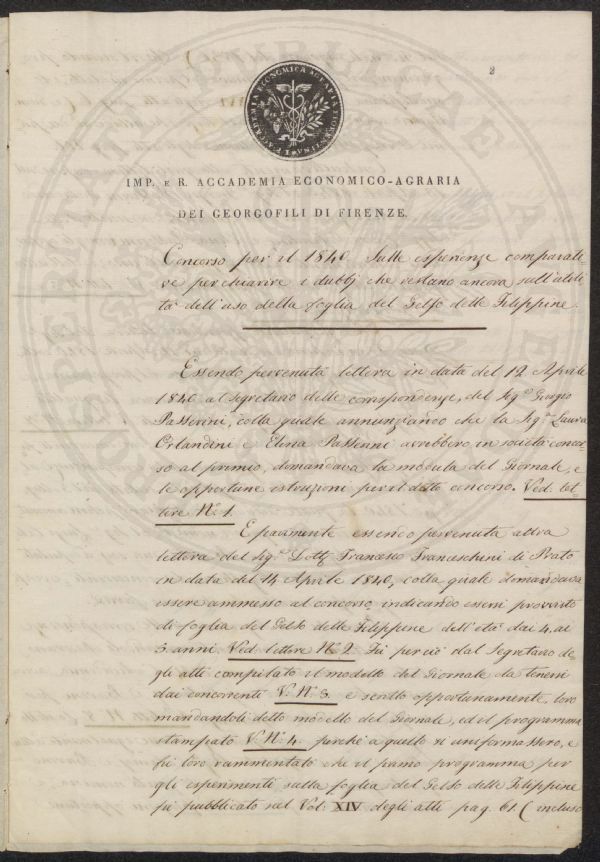 2
ACCADEMIA ECONOMICA AGRARIA FIORENTINA
IMP. E R. ACCADEMIA ECONOMICO-AGRARIA
DEI GEORGOFILI DI FIRENZE.
Concorso per il 1840. Sulle esperienze comparati-
ve per chiarire i dubbj che restano ancora sull'utili
tà dell'uso della foglia del Gelso delle Filippine.
Essendo pervenuta lettera in data del 12 Aprile
1840 al Segretario delle corrispondenze, del Sigr. Giorgio
Passerini, colla quale annunziando che la Sigra. Laura
Orlandini e Elena Passerini avrebbero in società concor-
so al premio, domandava la modula del Giornale, e
le opportune istruzioni per il detto concorso. Ved: let-
tere N.° 1.
E parimente essendo pervenuta altra
lettera del Sigr. Dott. Francesco Franceschini di Prato
in data del 14 Aprile 1840, colla quale domandava
essere ammesso al concorso, indicando essersi provvisto
di foglia del Gelso delle Filippine dell'età dai 4. ai
5. anni. Ved: lettere N.° 2. Fu perciò dal Segretario de
gli atti compilato il modello del Giornale da tenersi
dai concorrenti V. N.° 3. e scritto opportunamente, loro
mandandoli detto modello del Giornale, ed il programma
stampato V. N.° 4. perchè a quello si uniformassero, e
fu loro rammentato che il primo programma per
gli esperimenti sulla foglia del Gelso delle Filippine
fu pubblicato nel Vol: XIV degli atti pag. 61. (incluso